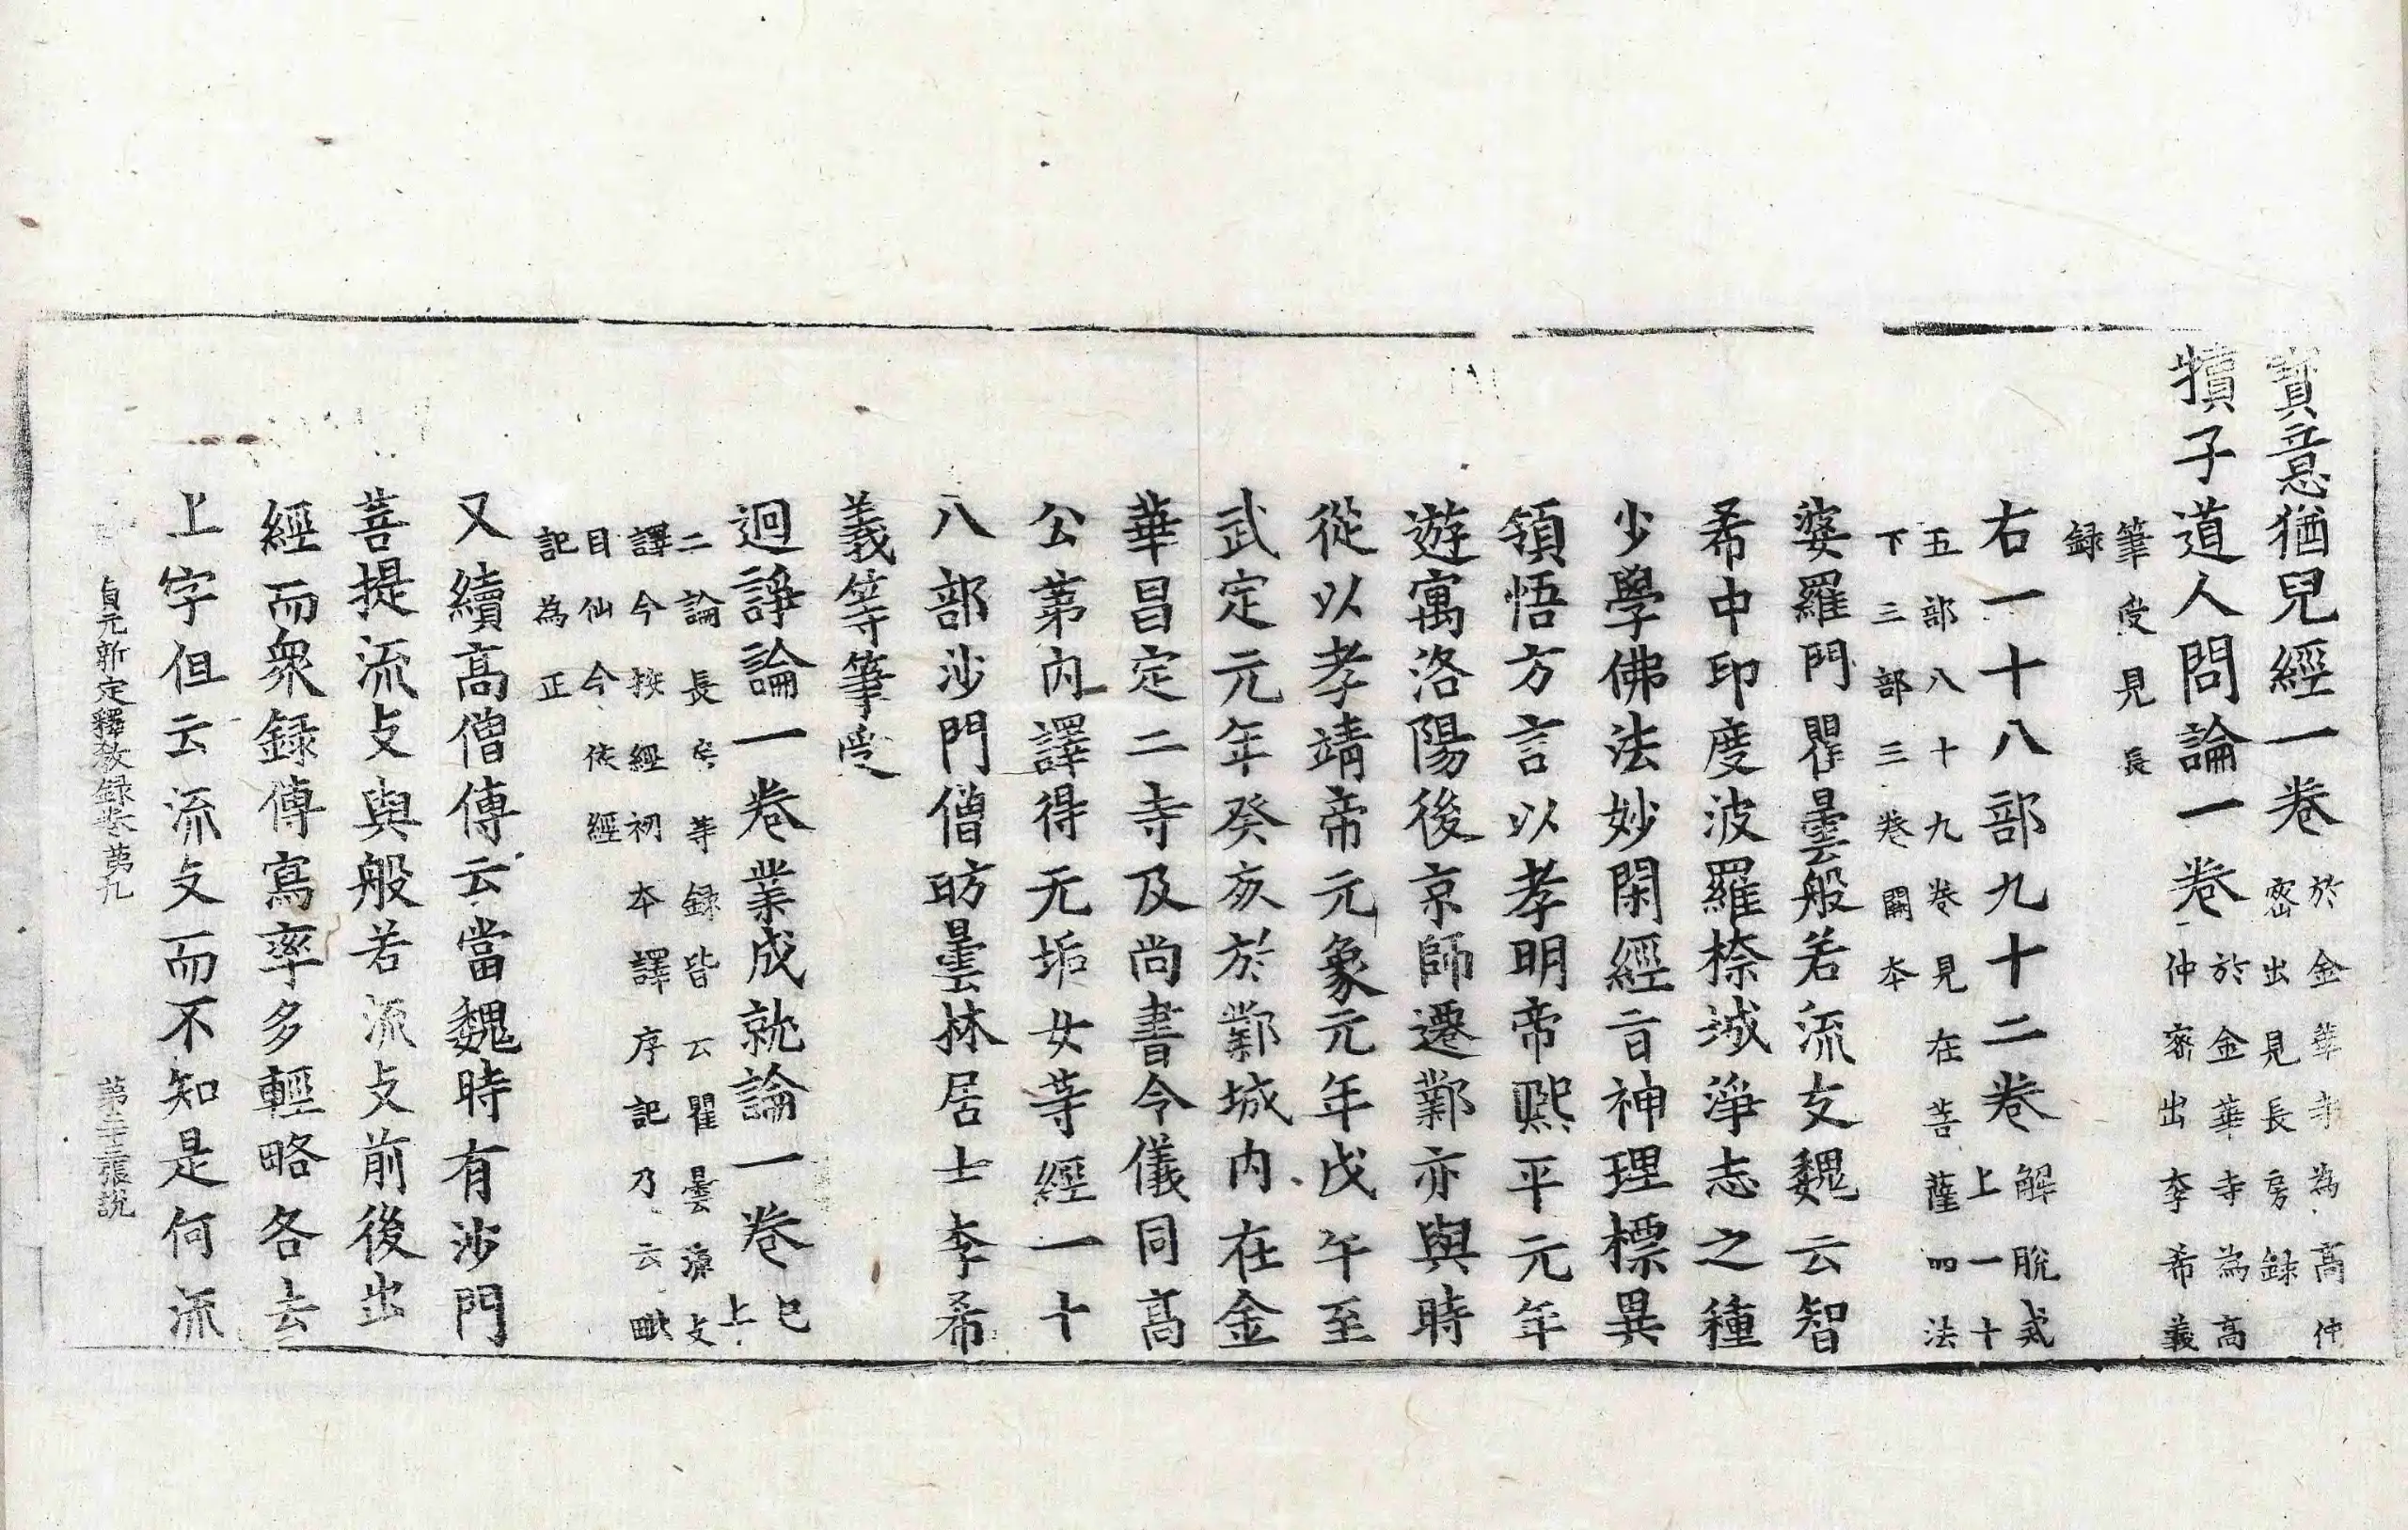 寶意猶兒經一卷於金華寺為高仲密出見長房録
犢子道人問論一卷於金華寺為高仲密出李希義
筆受見長
録
右一十八部九十二卷解脫戒上一十
五部八十九卷見在菩薩四法
下三部三卷闕本
婆羅門瞿曇般若流支魏云智
希中印度波羅㮈城淨志之種
少學佛法妙閑經旨神理標異
領悟方言以孝明帝熙平元年
遊寓洛陽後京師遷鄴亦與時
從以孝靖帝元象元年戊午至
武定元年癸亥於鄴城內在金
華昌定二寺及尚書令儀同高
公第內譯得无垢女等經一十
八部沙門僧昉曇林居士李希
義等筆受
迴諍論一卷業成就論一卷已上
二論長房等録皆云瞿曇流支
譯今按經初本譯序記乃云毗
目仙今依經
記為正
又續高僧傳云當魏時有沙門
菩提流支與般若流支前後出
經而衆録傳寫率多輕略各去
上字但云流支而不知是何流
貞元新定釋教録卷第九 第二十三張說